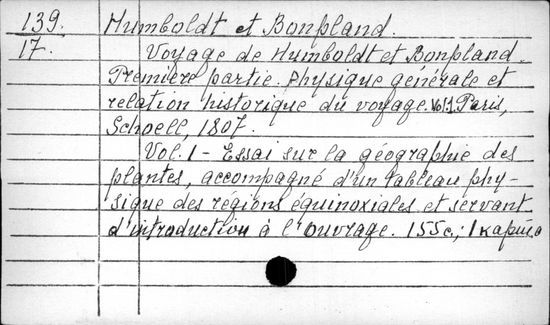 139. Humboldt et Bonpland.
17. Voyage de Humboldt et Bonpland.
Première partie. Physique générale et
relation historique du voyage. Vol 1. Paris,
Schoell, 1807.
Vol. 1 - Essai sur la géographie des
plantes, accompagné d'un tableau phy-
sique des régions équinoxiales et servant
d'introduction à l'Ouvrage. 155 c.; 1